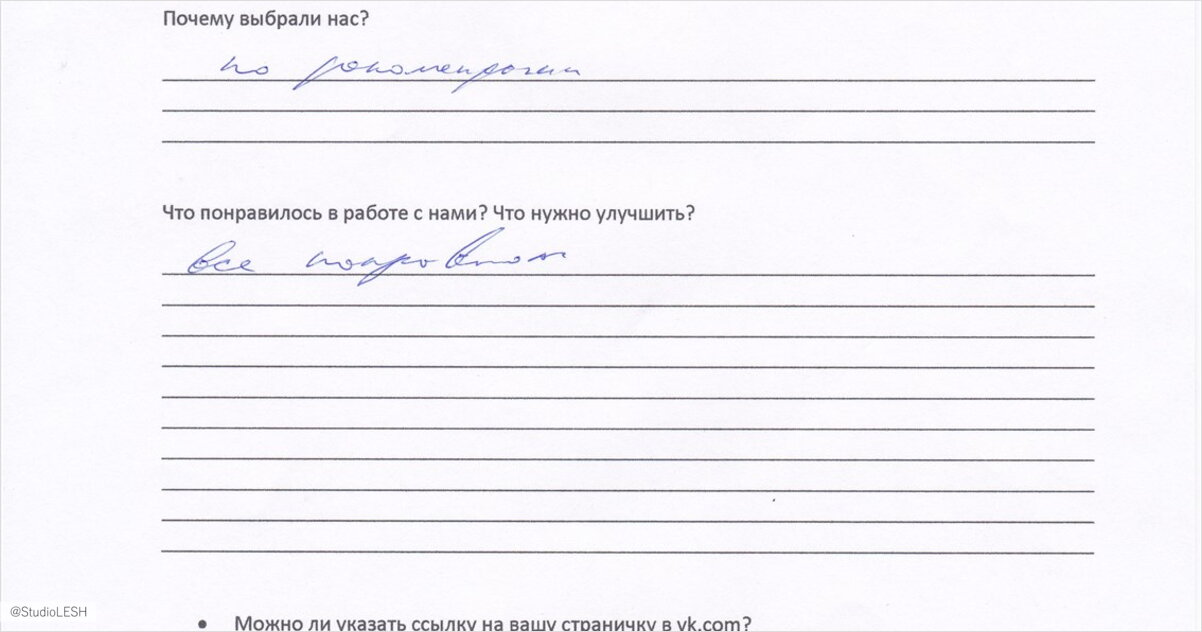 Почему выбрали нас?
по рекомендации
Что понравилось в работе с нами? Что нужно улучшить?
все понравилось
Можно ли указать ссылку на вашу страничку в vk.com?
@StudioLESH